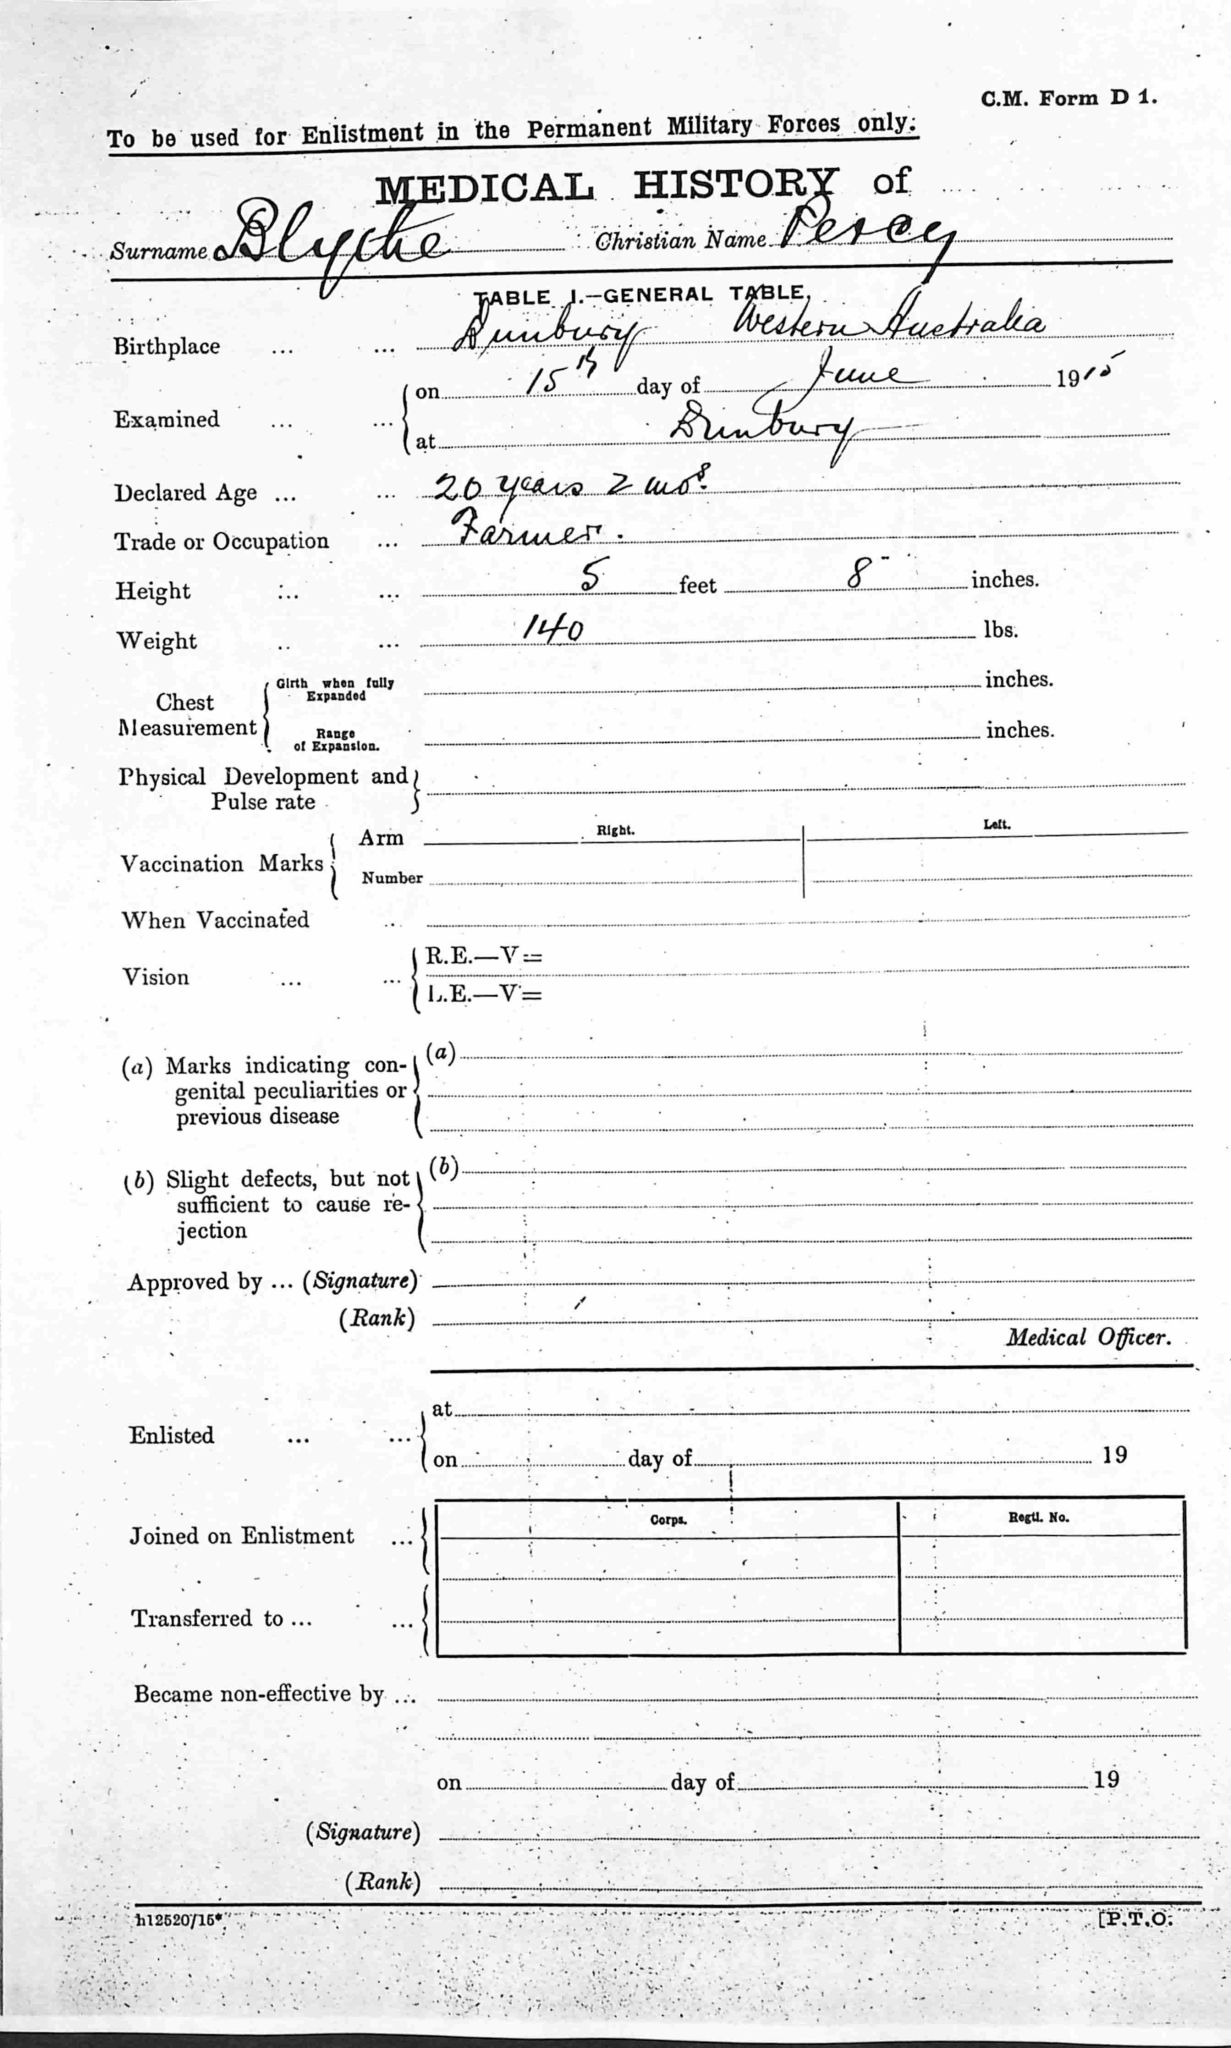 C.M. Form D 1.
To be used for Enlistment in the Permanent Military Forces only.
MEDICAL HISTORY of
Surname Blythe Christian Name Percy
TABLE I.—GENERAL TABLE.
Birthplace ... ... Bunbury Western Australia
Examined ... ... on 15th day of June 1915
at Bunbury
Declared Age ... ... 20 years 2 mos.
Trade or Occupation ... Farmer.
Height ... ... 5 feet 8 inches.
Weight .. ... 140 lbs.
Chest Measurement Girth when fully Expanded inches.
Range of Expansion. inches.
Physical Development and
Pulse rate
Vaccination Marks Arm Right. Left.
Number
When Vaccinated ..
Vision ... ... R.E.—V=
L.E.—V=
(a) Marks indicating con- (a)
genital peculiarities or
previous disease
(b) Slight defects, but not (b)
sufficient to cause re-
jection
Approved by ... (Signature)
(Rank)
Medical Officer.
Enlisted ... ... at
on day of 19
Corps. Regtl. No.
Joined on Enlistment ...
Transferred to ... ...
Became non-effective by ...
on day of 19
(Signature)
(Rank)
h12520/15* [P.T.O.